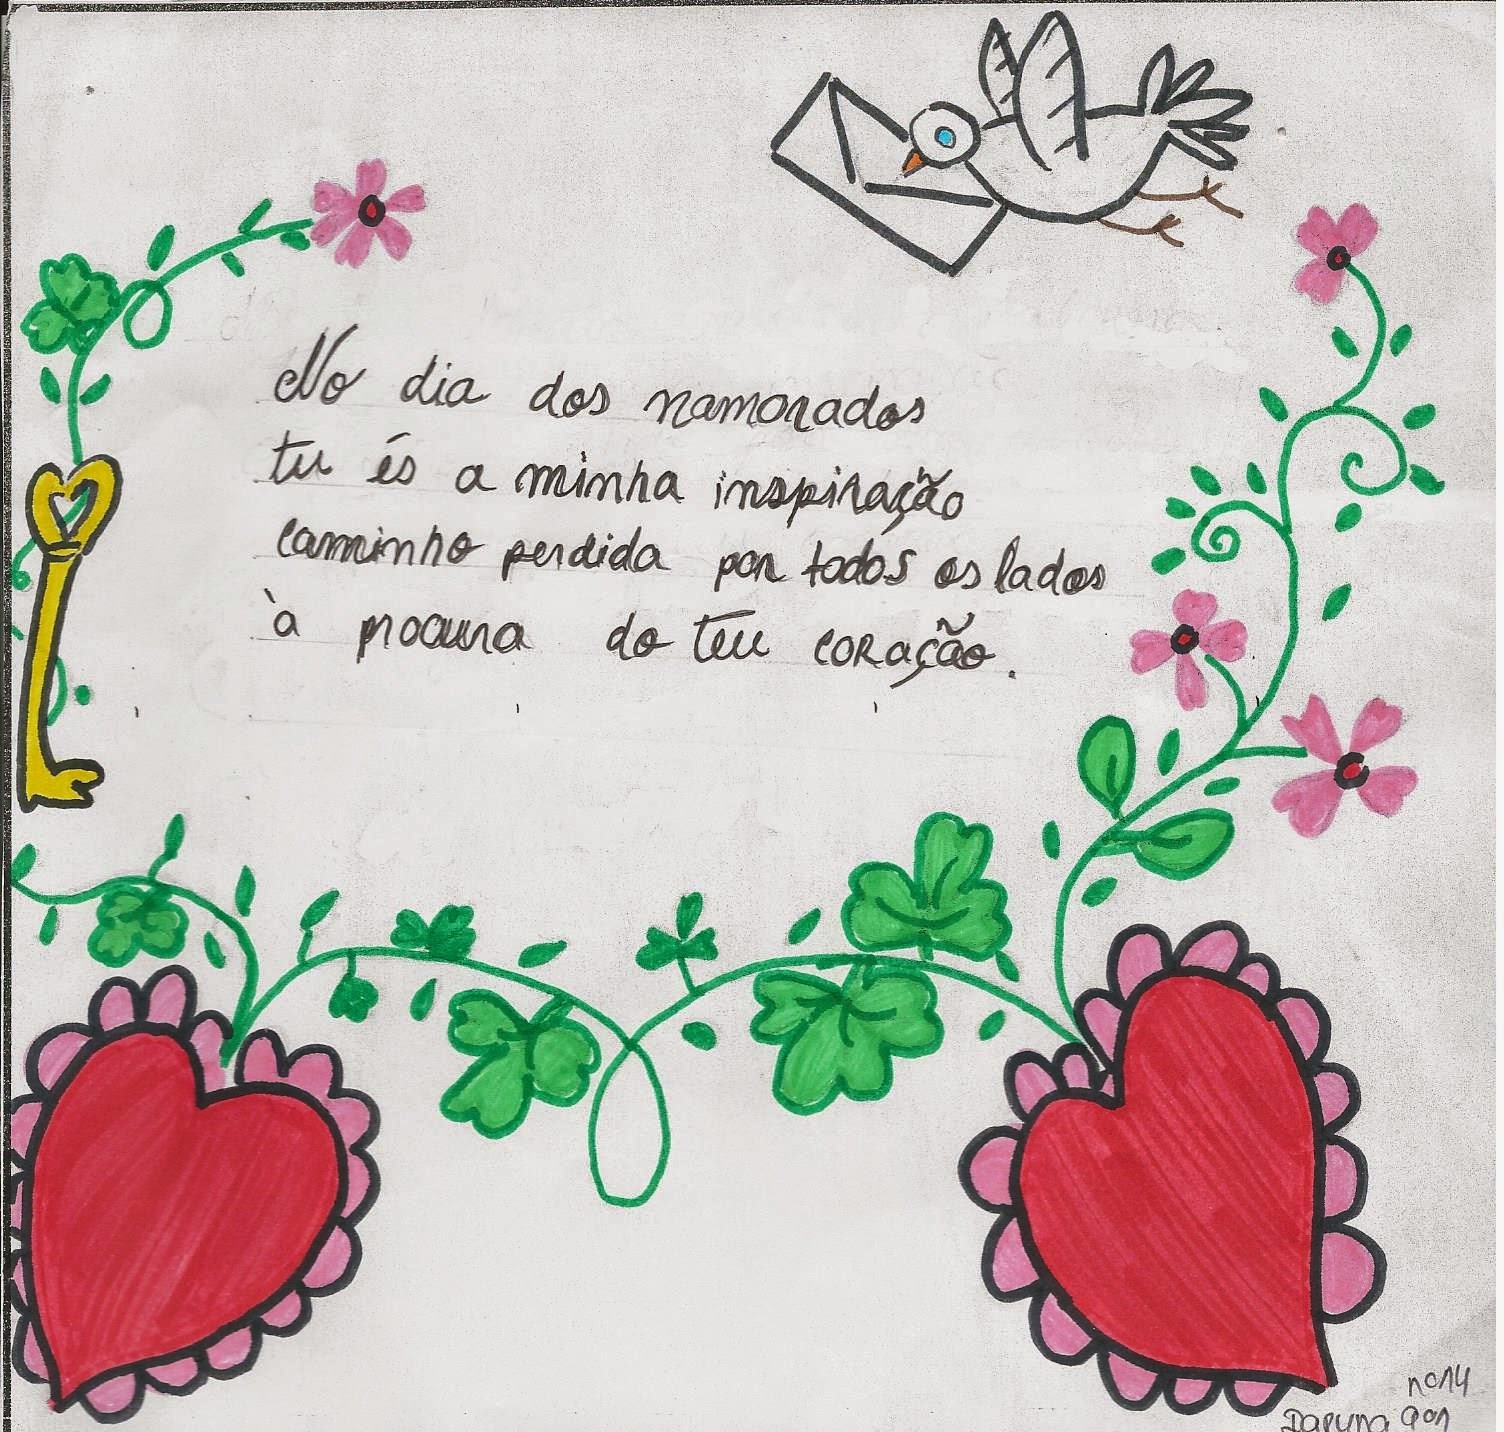 No dia dos namorados
tu és a minha inspiração
caminho perdida por todos os lados
à procura do teu coração.
nº14
9º1